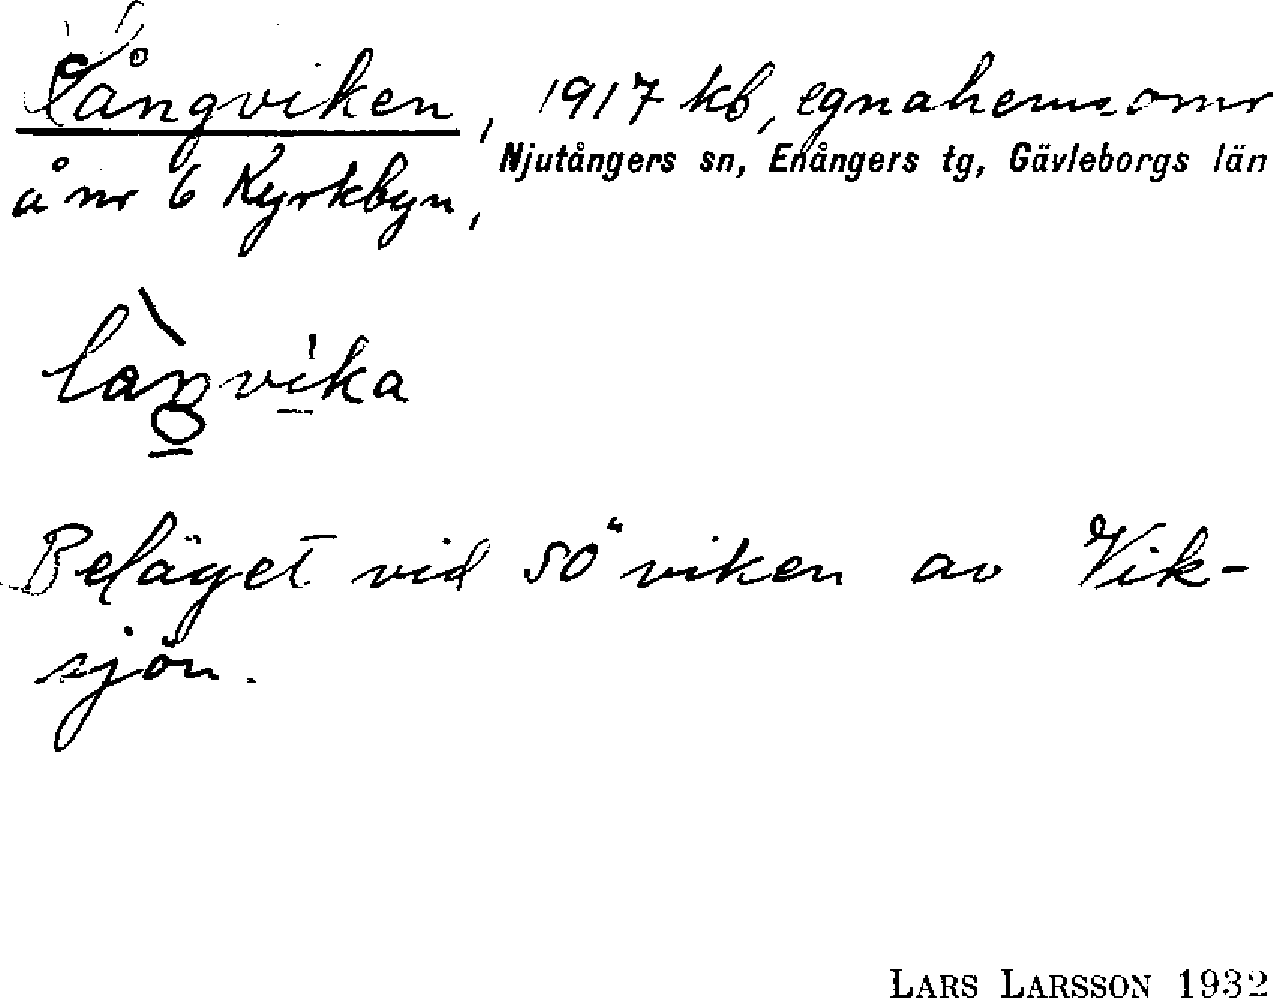 Långviken, 1917 kb, egnahemsomr
Njutångers sn, Enångers tg, Gävleborgs län
å nr 6 Kyrkbyn,
Beläget vid SÖ viken av Vik-
sjön.
LARS LARSSON 1932